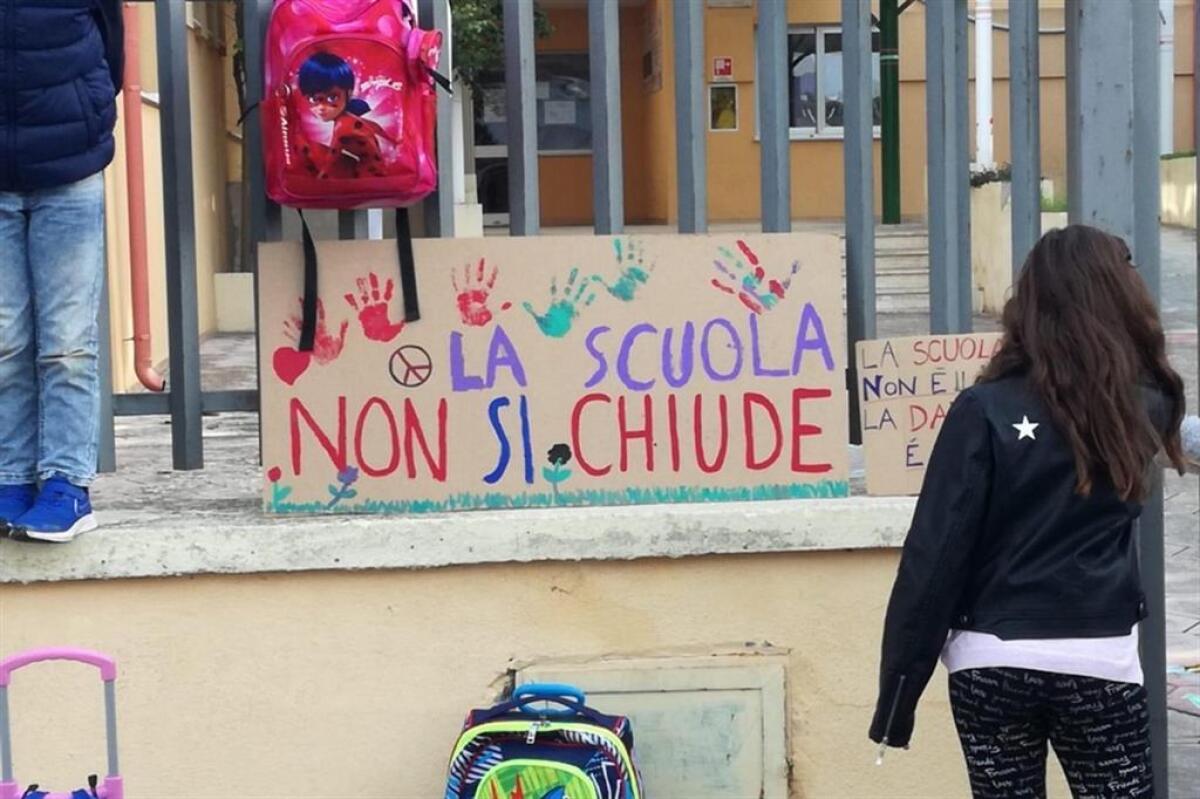 LA SCUOLA
NON SI CHIUDE
LA SCUOLA
NON È
LA
È